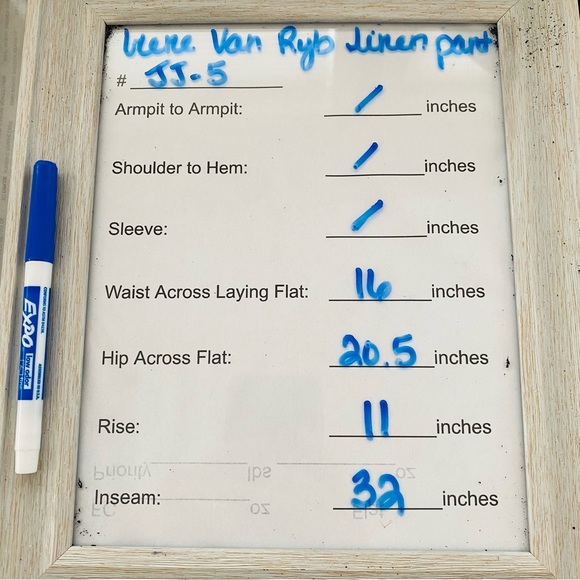 Irene Van Ryb linen pant
# JJ-5
Armpit to Armpit: / inches
Shoulder to Hem: / inches
Sleeve: / inches
Waist Across Laying Flat: 16 inches
Hip Across Flat: 20.5 inches
Rise: 11 inches
Priority lbs oz
Inseam: 32 inches
FC oz
EXPO
low odor